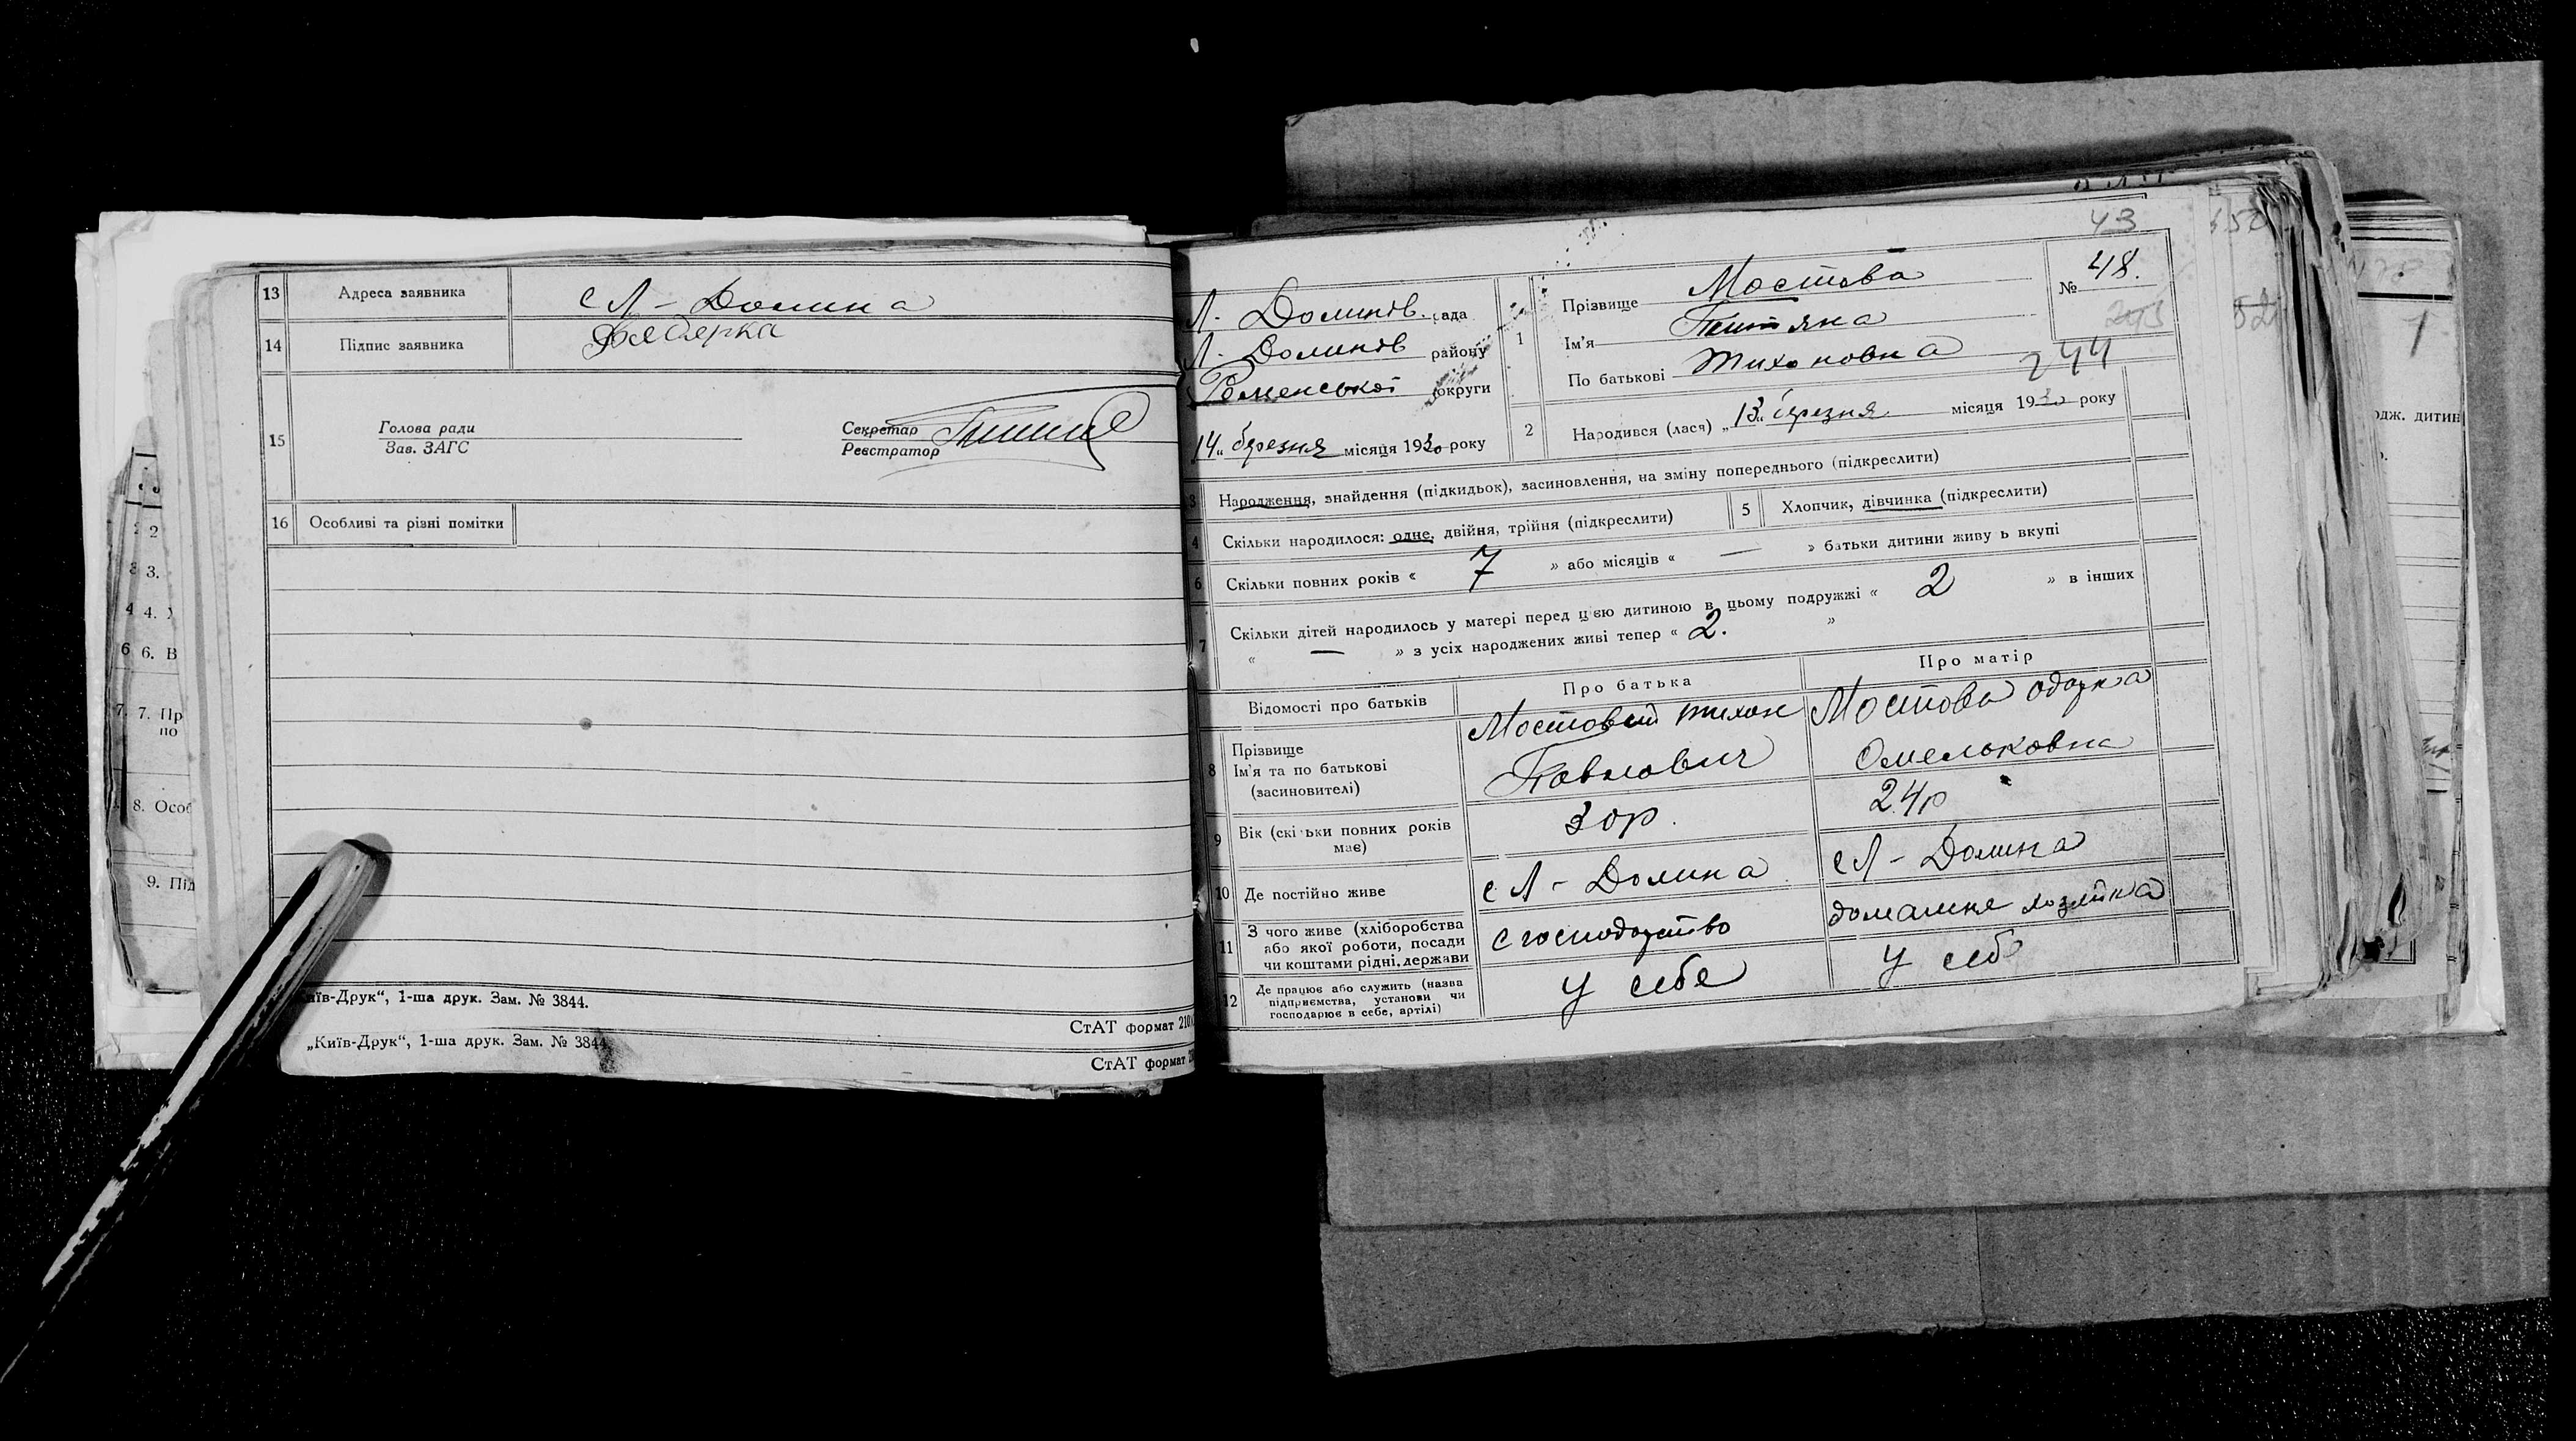 13 Адреса заявника с Л - Долина
14 Підпис заявника
15 Голова ради Секретар
Зав. ЗАГС Реєстратор
16 Особливі та різні помітки
2
3.
4.
6. В
7. Пр
по
8. Особ
9. Під
иїв-Друк“, 1-ша друк. Зам. № 3844.
СтАТ формат 210
„Київ-Друк“, 1-ша друк. Зам. № 3844
СтАТ формат
43
Л. Долинів. рада
Л. Долинів району
Роменської округи
14 „ березня місяця 1930 року
1 Прізвище Мостова
Ім'я Тетяна
По батькові Тихоновна
№ 48.
244
2 Народився (лася) „ 13 „ березня місяця 1930 року
3 Народження, знайдення (підкидьок), засиновлення, на зміну попереднього (підкреслити)
4 Скільки народилося: одне, двійня, трійня (підкреслити) 5 Хлопчик, дівчинка (підкреслити)
6 Скільки повних років « 7 » або місяців « — » батьки дитини живу ь вкупі
7 Скільки дітей народилось у матері перед цією дитиною в цьому подружжі « 2 » в інших
« — » з усіх народжених живі тепер « 2. »
Відомості про батьків Про батька Про матір
8 Прізвище
Ім'я та по батькові
(засиновителі)
Мостовий Тихон
Павлович
Мостова Одарка
Омельковна
9 Вік (скі ьки повних років
має) 30р. 24р
10 Де постійно живе с Л - Долина с Л - Долина
11 З чого живе (хліборобства
або якої роботи, посади
чи коштами рідні, держави
с господарство домашня хозяйка
12 Де працює або служить (назва
підприємства, установи чи
господарює в себе, артілі)
у себе у себ
одж. дитин